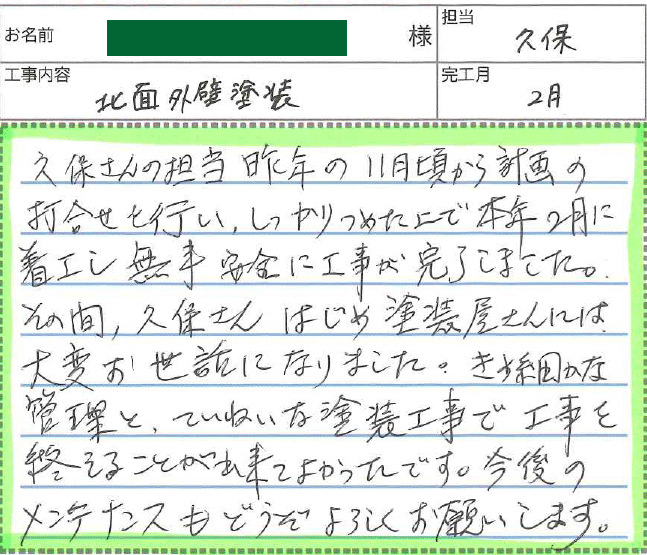 お名前 様 担当 久保
工事内容 北面外壁塗装 完工月 2月
久保さんの担当 昨年の11月頃から計画の
打合せを行い、しっかりつめた上で本年2月に
着工し無事安全に工事が完了しました。
その間、久保さんはじめ塗装屋さんには
大変お世話になりました。きめ細かな
管理と、ていねいな塗装工事で工事を
終えることが出来てよかったです。今後の
メンテナンスもどうぞよろしくお願いします。